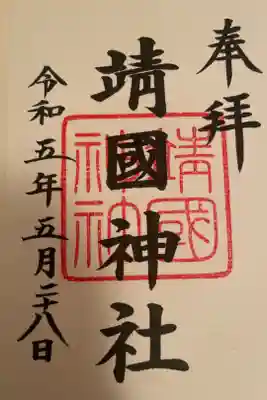 奉拝
靖國神社
靖國神社
令和五年五月二十八日